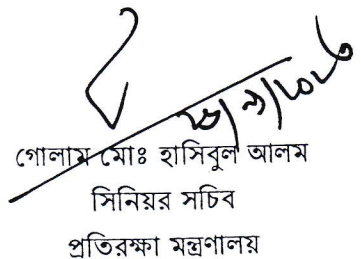 গোলাম মোঃ হাসিবুল আলম
সিনিয়র সচিব
প্রতিরক্ষা মন্ত্রণালয়